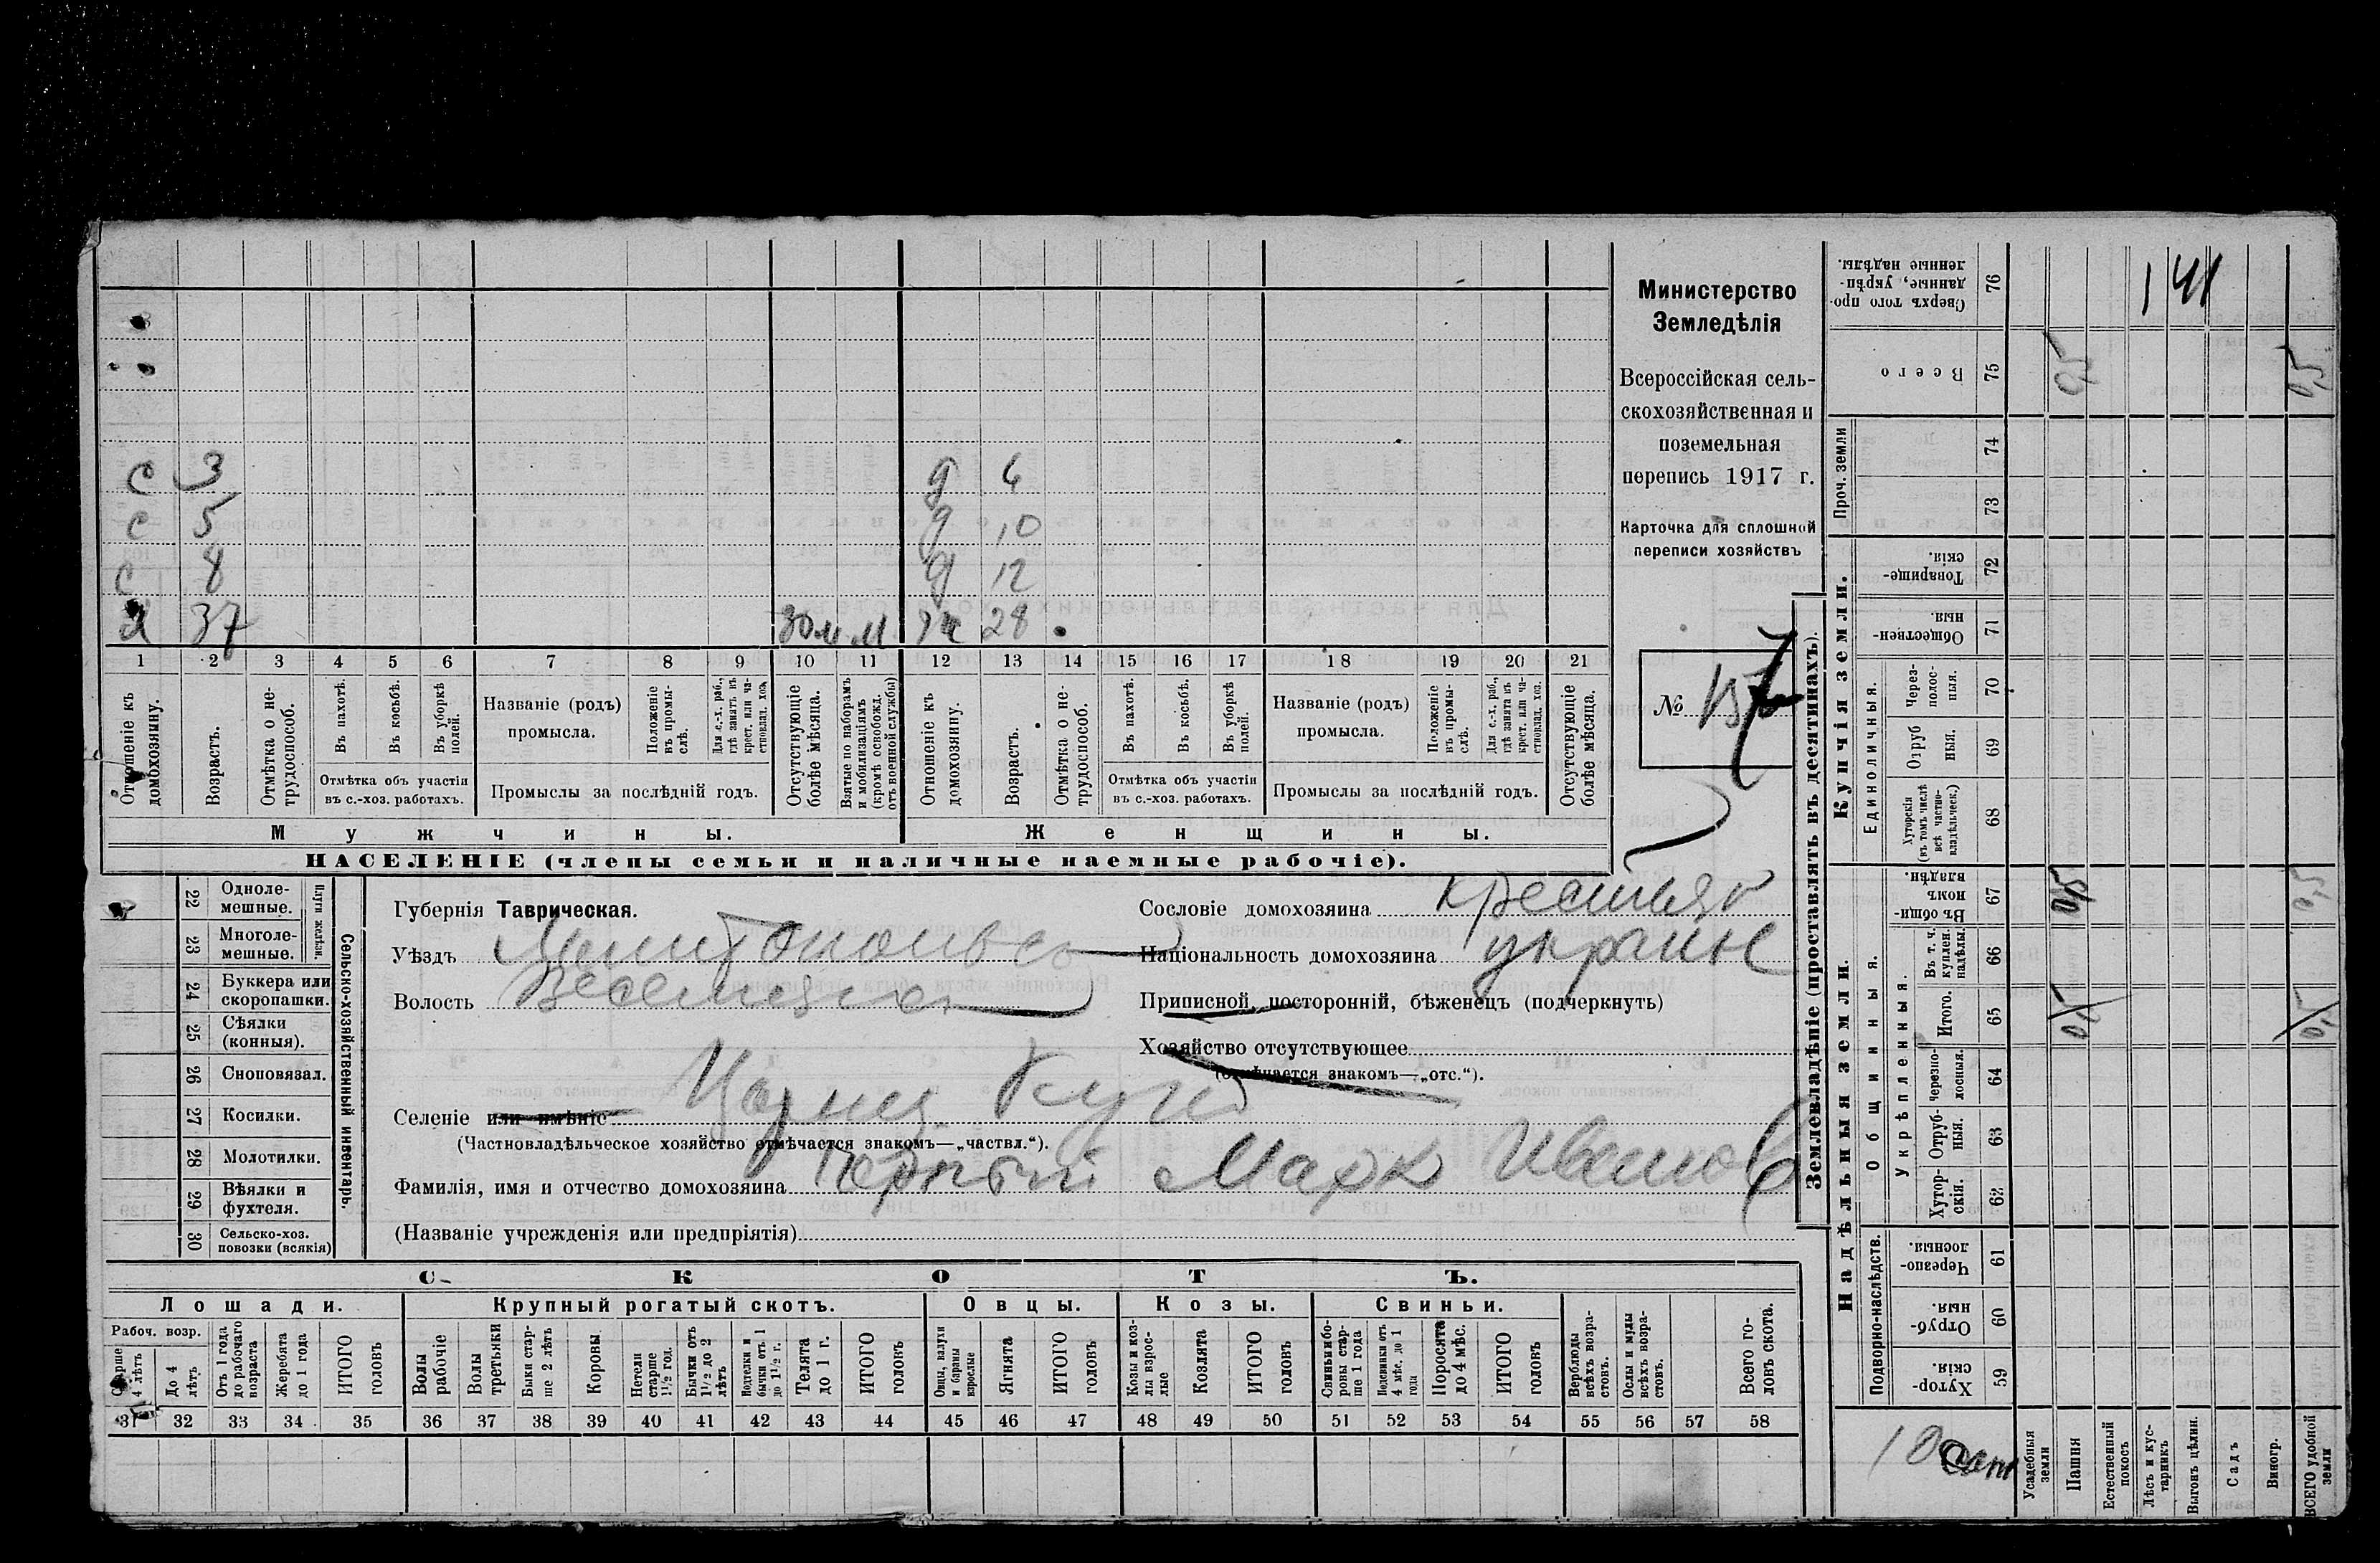 с 3 д 6
с 5 д 10
с 8 д 12
х 37 30 м м ж 28
1 2 3 4 5 6 7 8 9 10 11 12 13 14 15 16 17 18 19 20 21
Отношеніе къ домохозяину.
Возрастъ.
Отмѣтка о не-трудоспособ.
Въ пахотѣ.
Въ косьбѣ.
Въ уборкѣ полей.
Отмѣтка объ участіи
въ с.-хоз. работахъ.
Названіе (родъ)
промысла.
Положеніе въ промы-слѣ.
Для с.-х. раб., гдѣ занятъ въ крест. или ча-стновлад. хоз.
Промыслы за послѣдній годъ.
Отсутствующіе болѣе мѣсяца.
Взятые по наборамъ и мобилизаціямъ (кромѣ освобожд. отъ военной службы)
Отношеніе къ домохозяину.
Возрастъ.
Отмѣтка о не-трудоспособ.
Въ пахотѣ.
Въ косьбѣ.
Въ уборкѣ полей.
Отмѣтка объ участіи
въ с.-хоз. работахъ.
Названіе (родъ)
промысла.
Положеніе въ промы-слѣ.
Для с.-х. раб., гдѣ занята въ крест. или ча-стновлад. хоз.
Промыслы за послѣдній годъ.
Отсутствующіе болѣе мѣсяца.
Мужчины. Женщины.
НАСЕЛЕНІЕ (члены семьи и наличные наемные рабочіе).
Министерство
Земледѣлія
Всероссійская сель-
скохозяйственная и
поземельная
перепись 1917 г.
Карточка для сплошной
переписи хозяйствъ
№ 157
22 Одноле-мешные.
23 Многоле-мешные.
Плуги желѣзн.
24 Буккера или скоропашки.
25 Сѣялки (конныя).
26 Сноповязал.
27 Косилки.
28 Молотилки.
29 Вѣялки и фухтеля.
30 Сельско-хоз. повозки (всякія)
Сельско-хозяйственный инвентарь.
Губернія Таврическая.
Уѣздъ Мелитопольск
Волость Веселянск
Сословіе домохозяина крестьян
Національность домохозяина украинс
Приписной, посторонній, бѣженецъ (подчеркнуть)
Хозяйство отсутствующее
(отмѣчается знакомъ—„отс.“).
Селеніе или имѣніе
(Частновладѣльческое хозяйство отмѣчается знакомъ—„частвл.“).
Фамилія, имя и отчество домохозяина Черный Марк Иванов
(Названіе учрежденія или предпріятія)
СКОТЪ.
Лошади. Крупный рогатый скотъ. Овцы. Козы. Свиньи.
Рабоч. возр.
Старше 4 лѣтъ
До 4 лѣтъ
Отъ 1 года до рабочаго возраста
Жеребята до 1 года
ИТОГО головъ
Волы рабочіе
Волы третьяки
Быки стар-ше 2 лѣтъ
Коровы
Нетели старше 1½ год.
Бычки отъ 1½ до 2 лѣтъ
Подтелки и бычки отъ 1 до 1½ г.
Телята до 1 г.
ИТОГО головъ
Овцы, валухи и бараны взрослые
Ягнята
ИТОГО головъ
Козы и коз-лы взрос-лые
Козлята
ИТОГО головъ
Свиньи и бо-ровы стар-ше 1 года
Подсвинки отъ 4 мѣс. до 1 года
Поросята до 4 мѣс.
ИТОГО головъ
Верблюды всѣхъ возра-стовъ.
Ослы и мулы всѣхъ возра-стовъ.
Всего го-ловъ скота.
31 32 33 34 35 36 37 38 39 40 41 42 43 44 45 46 47 48 49 50 51 52 53 54 55 56 57 58
Землевладѣніе (проставлять въ десятинахъ).
Надѣльныя земли. Купчія земли.
Сверхъ того про-данные, укрѣп-ленные надѣлы. 76 141
Всего 75 0,5 0,5
Проч. земли 74
73
Товарище-скія. 72
Обществен-ныя 71
Единоличныя.
Через-полос-ныя. 70
Отруб ныя. 69
Хуторскія (въ томъ числѣ всѣ частно-владѣльческ.) 68
Общинныя.
Въ общи-номъ владѣн. 67 0,5 0,5
Укрѣпленныя.
Въ т. ч. куплен. надѣлы. 66
Итого. 65 0,5 0,5
Черезпо-лосныя. 64
Отруб-ныя. 63
Хутор-скія. 62
Подворно-наслѣдств.
Черезпо-лосныя. 61
Отруб-ныя. 60
Хутор-скія. 59
Усадебныя земли
Пашня
Естественный покосъ
Лѣсъ и кус-тарникъ
Выгонъ цѣлин.
Садъ
Виногр.
ВСЕГО удобной земли